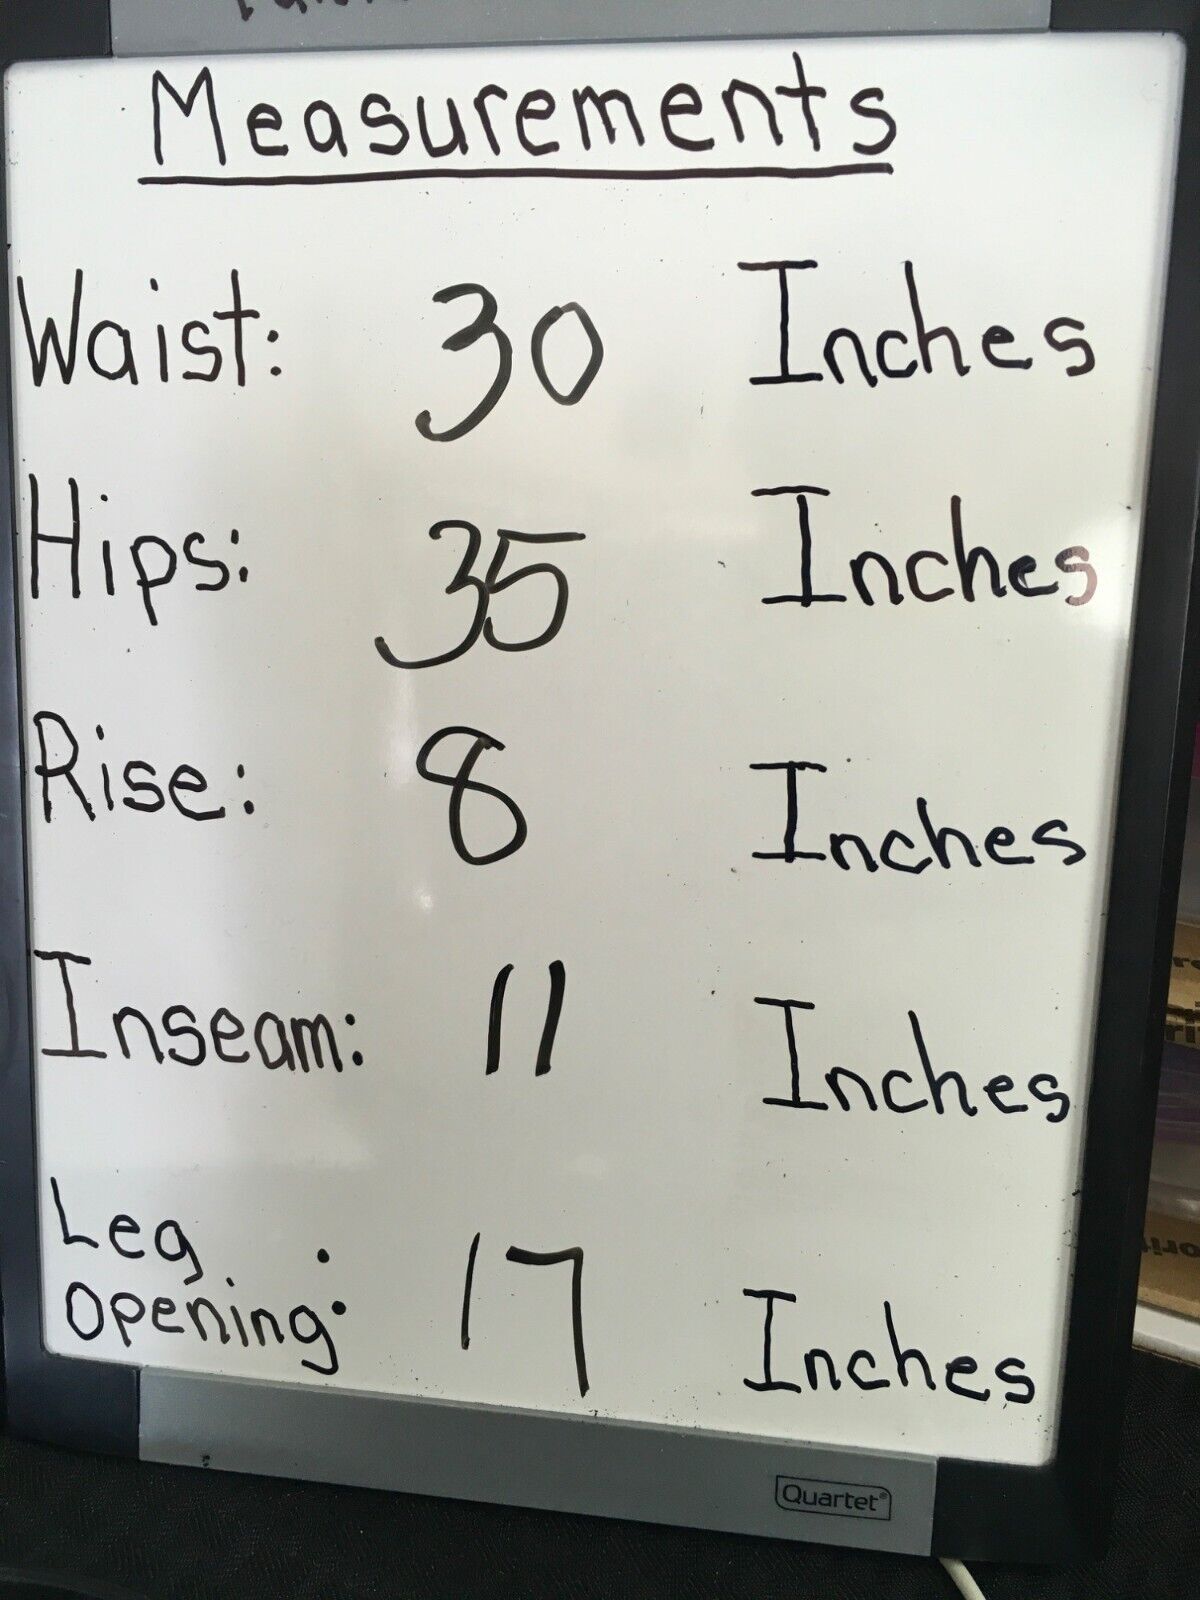 Measurements
Waist: 30 Inches
Hips: 35 Inches
Rise: 8 Inches
Inseam: 11 Inches
Leg
Opening: 17 Inches
Quartet®